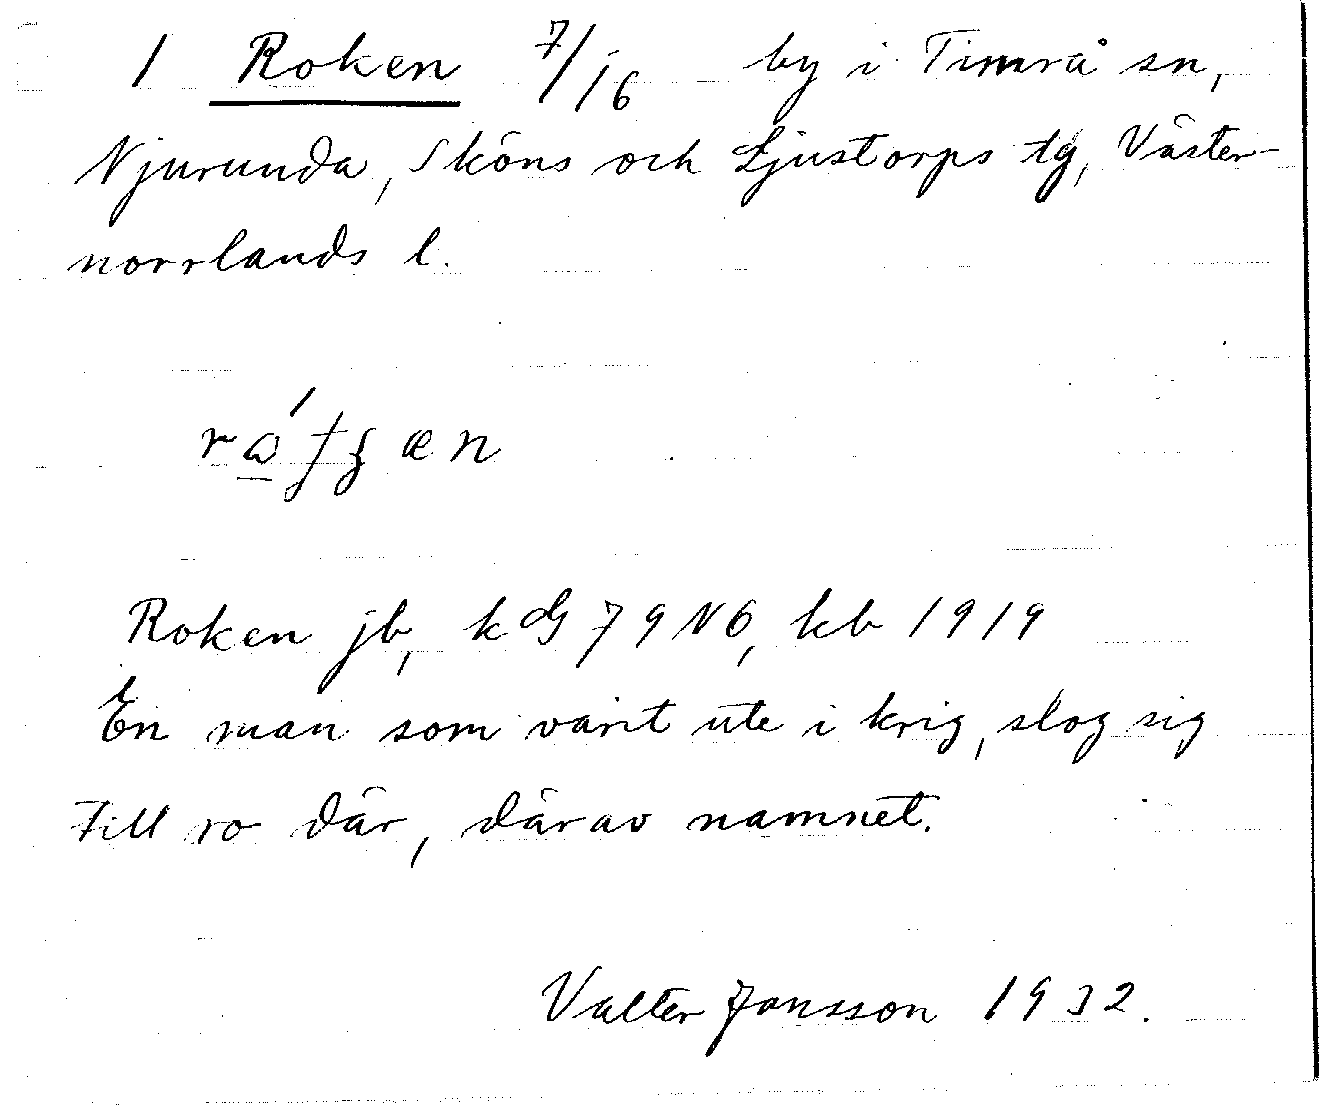 1 Roken 7/16 by i Timrå sn,
Njurunda, Sköns och Ljustorps tg, Väster-
norrlands l.
Roken jb, k 79 NO, kb 1919
En man som varit ute i krig, slog sig
till ro där, därav namnet.
Valter Jonsson 1932.